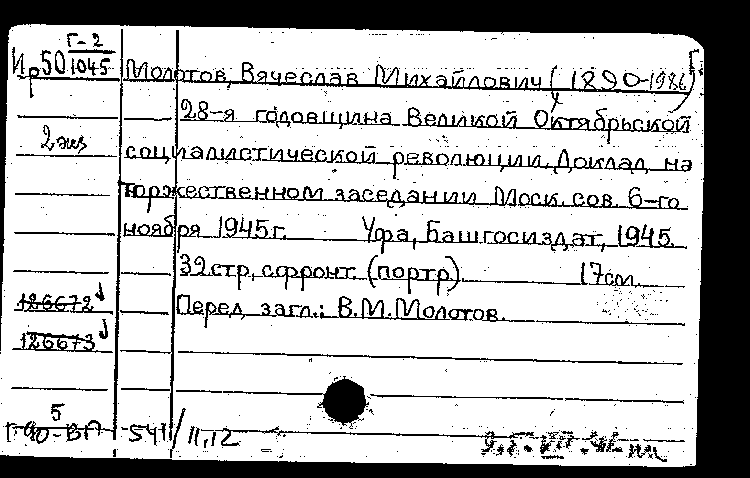 Г-2
Ир50 1045 Молотов, Вячеслав Михайлович (1890-1986)
28-я годовщина Великой Октябрьской
2 экз социалистической революции. Доклад на
торжественном заседании Моск. сов. 6-го
ноября 1945г. Уфа, Башгосиздат, 1945.
32 стр, с фронт. (портр). 17 см.
126672 Перед загл.: В.М. Молотов.
126673
5
541 / 11,12